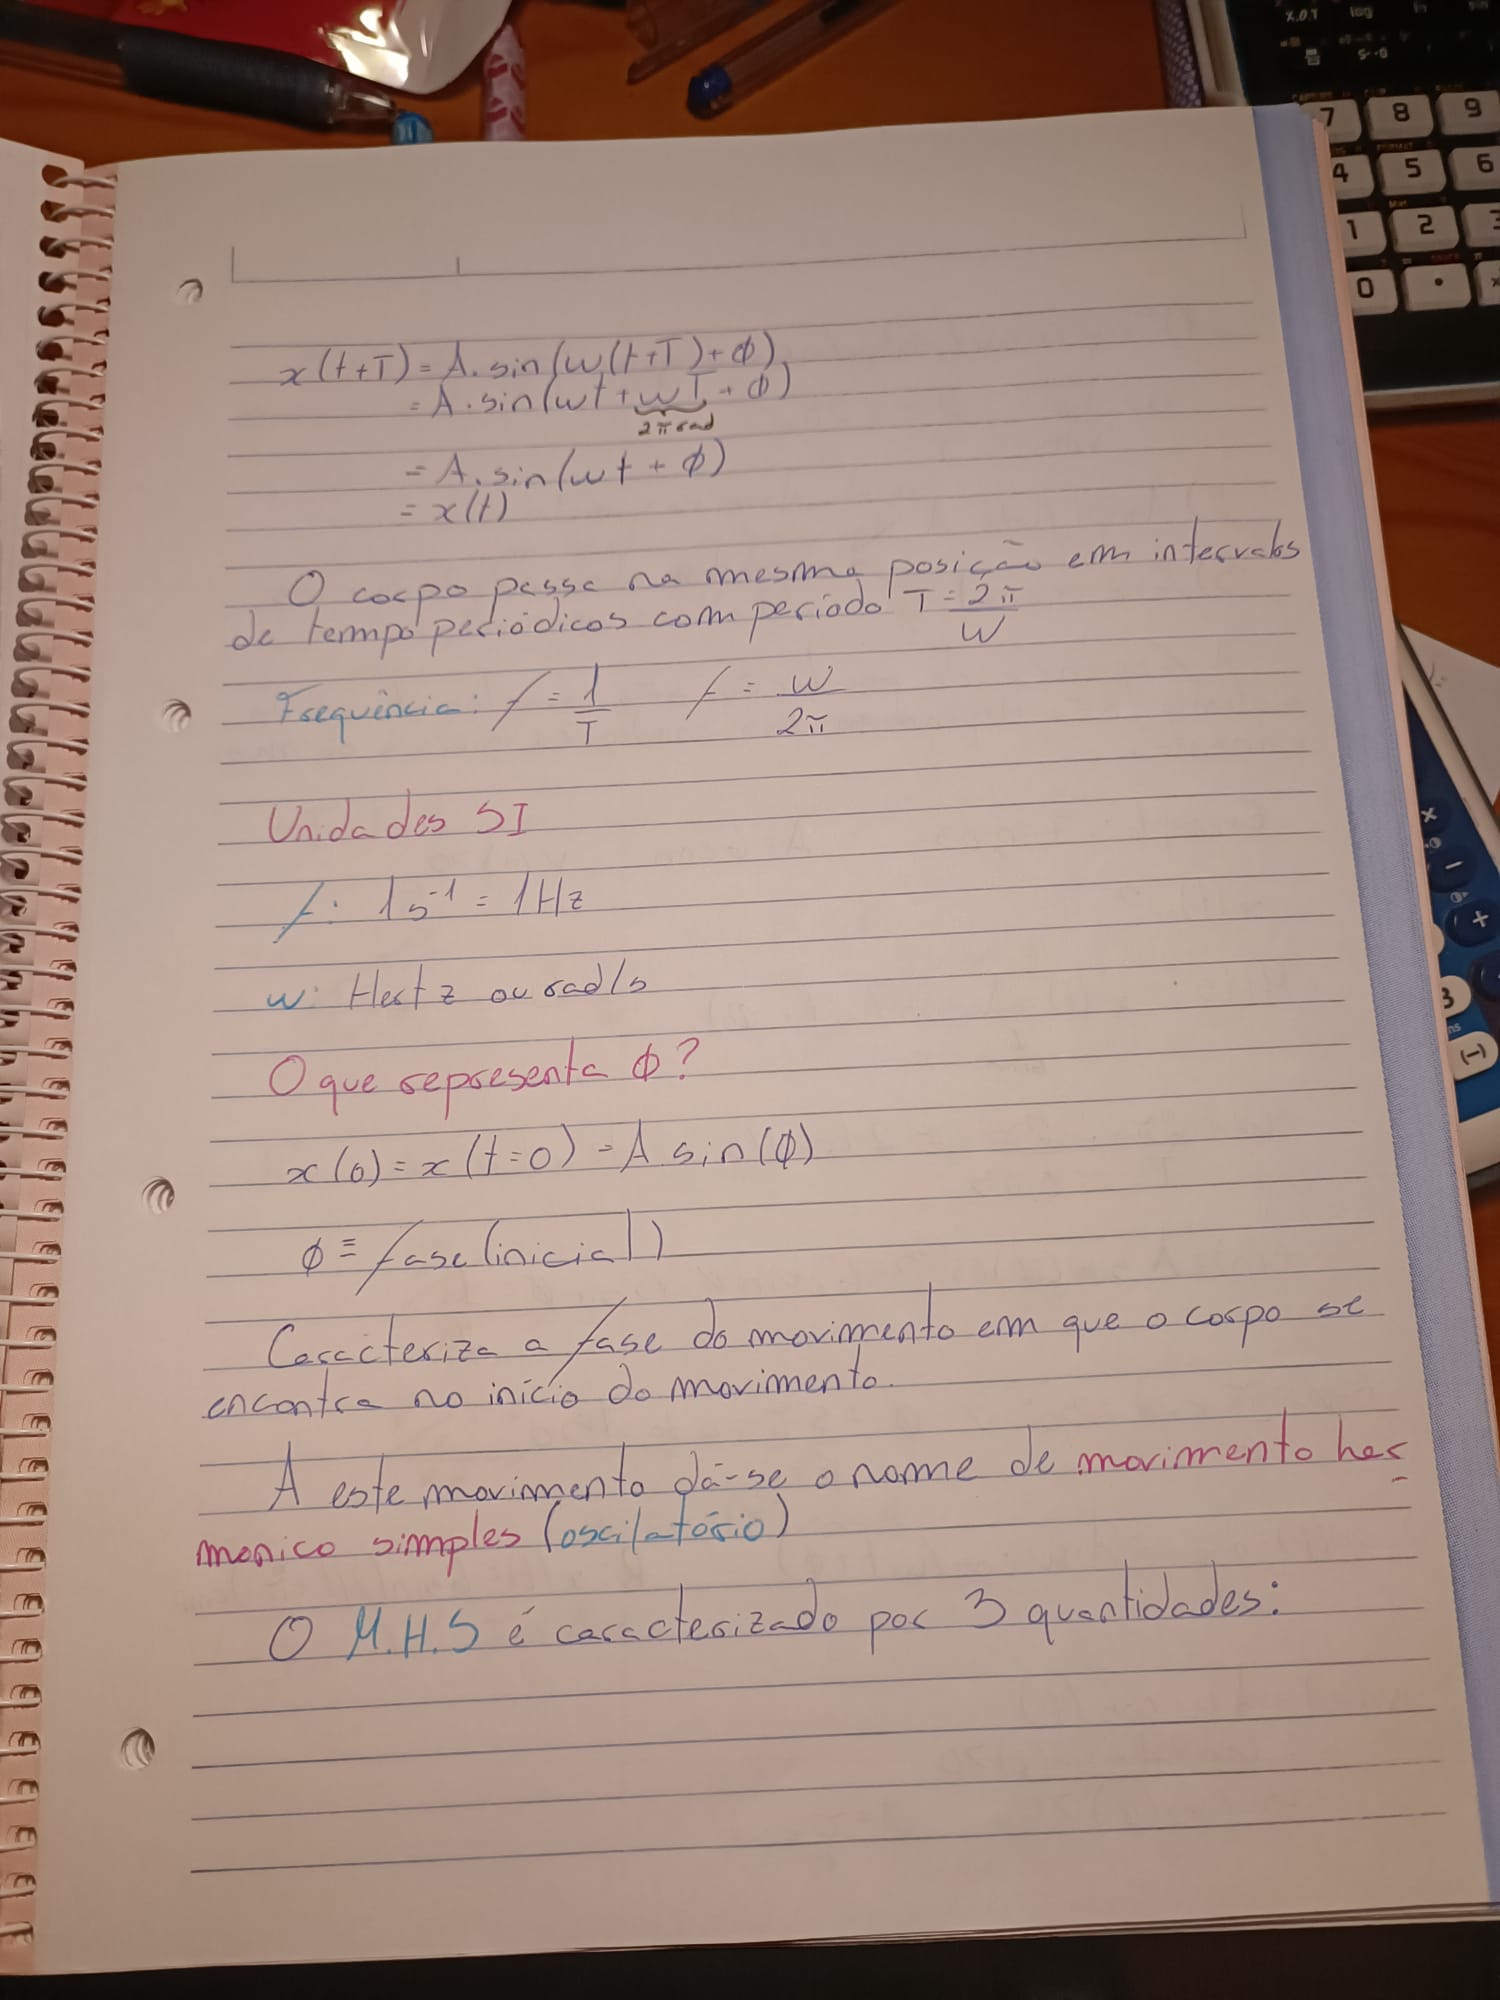 x(t+T) = A.sin(w(t+T)+ϕ)
= A.sin(wt+wT+ϕ)
2π rad
= A.sin(wt+ϕ)
= x(t)
O corpo passa na mesma posição em intervalos
de tempo periódicos com período T = 2π/w
Frequência: f = 1/T f = w/2π
Unidades SI
f: 1s⁻¹ = 1Hz
w: Hertz ou rad/s
O que representa ϕ?
x(0) = x(t=0) = A sin(ϕ)
ϕ ≡ fase (inicial)
Caracteriza a fase do movimento em que o corpo se
encontra no início do movimento.
A este movimento dá-se o nome de movimento har-
monico simples (oscilatório)
O M.H.S é caracterizado por 3 quantidades:
X,Θ,T log ln sin
7 8 9
4 5 6
1 2 3
0 •
× − +
3 (−)